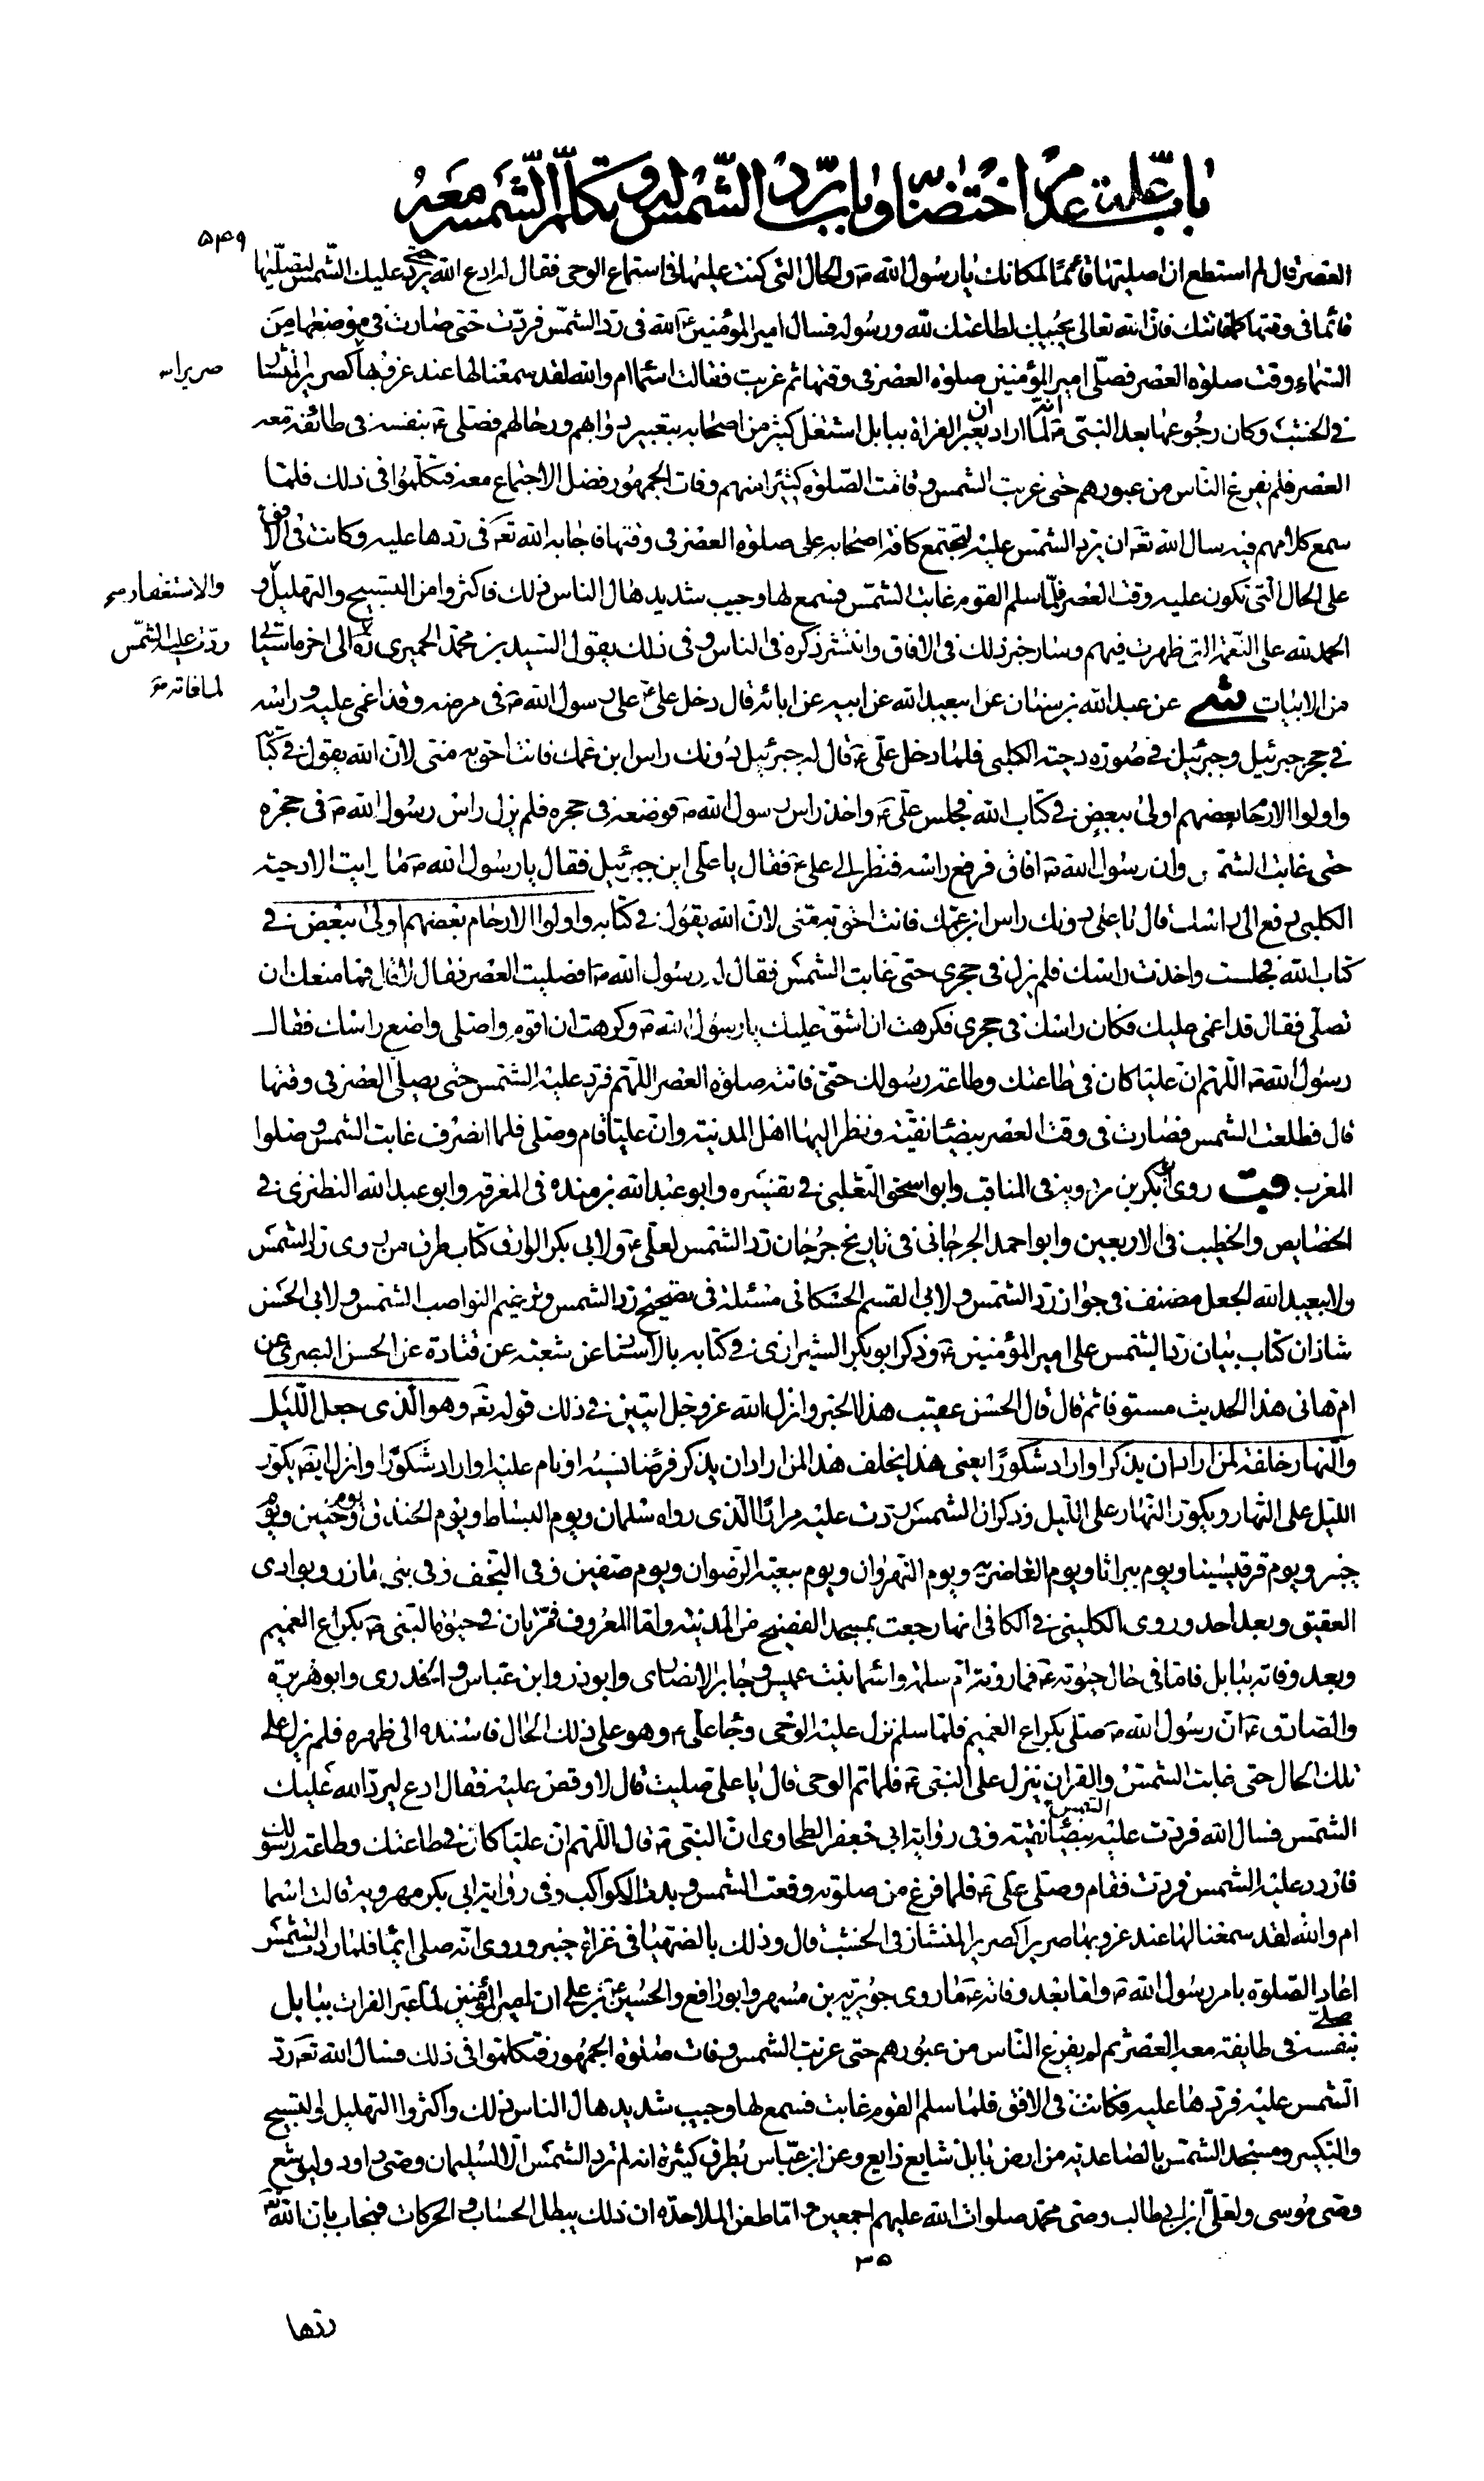 باب علة عدم اختضابه وباب رد الشمس له وتكلم الشمس معه
۵۴۹
العصر قال لم استطع ان اصليها قائما لمكانك يا رسول الله ص والحال التي كنت عليها في استماع الوحي فقال له ادع الله حتى يرد عليك الشمس لتصليها
قائما في وقتها كما فاتتك فان الله تعالى يجيبك لطاعتك لله ورسوله فسال امير المؤمنين ع الله في رد الشمس فردت حتى صارت في موضعها من
السماء وقت صلوة العصر فصلى امير المؤمنين صلوة العصر في وقتها ثم غربت فقالت اسماء ام والله لقد سمعنا لها عند غروبها كصرير المنشار
صرير ا سه
في الخشب وكان رجوعها بعد النبي ص انه لما اراد ان يعبر الفراة ببابل اشتغل كثير من اصحابه بتعبير دوابهم ورحالهم فصلى ع بنفسه في طائفة معه
العصر فلم يفرغ الناس من عبورهم حتى غربت الشمس وفاتت الصلوة كثيرا منهم وفات الجمهور فضل الاجتماع معه فتكلموا في ذلك فلما
سمع كلامهم فيه سال الله تعه ان يرد الشمس عليه لتجتمع كافة اصحابه على صلوة العصر في وقتها فاجابه الله تعه في ردها عليه وكانت في الافق
على الحال التي تكون عليه وقت العصر فلما سلم القوم غابت الشمس فسمع لها وجيب شديد هال الناس ذلك فاكثروا من التسبيح والتهليل و
والاستغفار صح
الحمد لله على النعمة التي ظهرت فيهم وسار خبر ذلك في الافاق وانتشر ذكره في الناس وفي ذلك يقول السيد بن محمد الحميري ره الى اخر ما سيأتي
ردت عليه الشمس
لما فاته مو
من الابيات شى عن عبد الله بن سنان عن ابيعبد الله عن ابيه عن ابائه قال دخل علي ع على رسول الله ص في مرضه وقد اغمي عليه وراسه
في حجر جبرئيل وجبرئيل في صورة دحية الكلبي فلما دخل علي ع قال له جبرئيل دونك راس ابن عمك فانت احق به مني لان الله يقول في كتا
واولوا الارحا بعضهم اولى ببعض في كتاب الله فجلس علي ع واخذ راس رسول الله ص فوضعه في حجره فلم يزل راس رسول الله ص في حجره
حتى غابت الشمس وان رسول الله ص افاق فرفع راسه فنظر الى علي ع فقال يا علي اين جبرئيل فقال يا رسول الله ص ما رايت الا دحية
الكلبي دفع الى راسك قال يا علي دونك راس ابن عمك فانت احق به مني لان الله يقول في كتابه واولوا الارحام بعضهم اولى ببعض في
كتاب الله فجلست واخذت راسك فلم يزل في حجري حتى غابت الشمس فقال له رسول الله ص افصليت العصر فقال لا قال فما منعك ان
تصلي فقال قد اغمي عليك فكان راسك في حجري فكرهت ان اشق عليك يا رسول الله ص وكرهت ان اقوم واصلي واضع راسك فقال
رسول الله ص اللهم ان عليا كان في طاعتك وطاعة رسولك حتى فاتته صلوة العصر اللهم فرد عليه الشمس حتى يصلي العصر في وقتها
قال فطلعت الشمس فصارت في وقت العصر بيضا نقية ونظر اليها اهل المدينة وان عليا قام وصلى فلما انصرف غابت الشمس وصلوا
المغرب قيت روى ابو بكر بن مردويه في المناقب وابو اسحق الثعلبي في تفسيره وابو عبد الله بن منده في المعرفة وابو عبد الله النطنزي في
الخصايص والخطيب في الاربعين وابو احمد الجرجاني في تاريخ جرجان رد الشمس لعلي ع ولابي بكر الوراق كتاب طرق من روى رد الشمس
ولابيعبد الله الجعل مصنف في جواز رد الشمس ولابي القسم الحسكاني مسئلة في تصحيح رد الشمس وترغيم النواصب الشمس ولابي الحسن
شاذان كتاب بيان رد الشمس على امير المؤمنين ع وذكر ابو بكر الشيرازي في كتابه بالاسناد عن شعبة عن قتادة عن الحسن البصري عن
ام هاني هذا الحديث مستوفا ثم قال قال الحسن عقيب هذا الخبر وانزل الله عز وجل ايتين في ذلك قوله تعه وهو الذي جعل الليل
والنهار خلفة لمن اراد ان يذكر او اراد شكورا يعني هذا يخلف هذا لمن اراد ان يذكر فرضا نسيه او نام عليه او اراد شكورا وانزل ايضه يكور
الليل على النهار ويكور النهار على الليل وذكر ان الشمس ردت عليه مرارا الذي رواه سلمان ويوم البساط ويوم الخندق ويوم حنين ويوم
خيبر ويوم قرقيسيا ويوم براثا ويوم الغاضرية ويوم النهروان ويوم بيعة الرضوان ويوم صفين وفي النجف وفي بني مازر وبوادي
العقيق وبعد احد وروى الكليني في الكافي انها رجعت بمسجد الفضيخ من المدينة واما المعروف فمرتان في حيوة النبي ص بكراع الغميم
وبعد وفاته ببابل فاما في حال حيوته ع فما روته ام سلمة واسما بنت عميس وجابر الانصاري وابو ذر وابن عباس والخدري وابو هريرة
والصادق ع ان رسول الله ص صلى بكراع الغميم فلما سلم نزل عليه الوحي وجا علي ع وهو على ذلك الحال فاسنده الى ظهره فلم يزل على
تلك الحال حتى غابت الشمس والقران ينزل على النبي ص فلما تم الوحي قال يا علي صليت قال لا وقص عليه فقال ادع ليرد الله عليك
الشمس فسال الله فردت عليه الشمس بيضا نقية وفي رواية ابي جعفر الطحاوي ان النبي ص قال اللهم ان عليا كان في طاعتك وطاعة رسولك
فاردد عليه الشمس فردت فقام وصلى علي ع فلما فرغ من صلوته وقعت الشمس وبدت الكواكب وفي رواية ابي بكر مهرويه قالت اسما
ام والله لقد سمعنا لها عند غروبها صريرا كصرير المنشار في الخشب قال وذلك بالصهبا في غزاة خيبر وروي انه صلى ايما فلما ردت الشمس
اعاد الصلوة بامر رسول الله ص واما بعد وفاته ع ما روى جويرية بن مسهر وابو رافع والحسين بن علي ع ان امير المؤمنين لما عبر الفرات ببابل
صلى بنفسه في طايفة معه العصر ثم لم يفرغ الناس من عبورهم حتى غربت الشمس وفات صلوة الجمهور فتكلموا في ذلك فسال الله تعه رد
الشمس عليه فردها عليه فكانت في الافق فلما سلم القوم غابت فسمع لها وجيب شديد هال الناس ذلك واكثروا التهليل والتسبيح
والتكبير ومسجد الشمس بالصاعدية من ارض بابل شايع ذايع وعن ابن عباس بطرق كثيرة انه لم ترد الشمس الا لسليمان وصي داود وليوشع
وصي موسى ولعلي بن ابي طالب وصي محمد صلوات الله عليهم اجمعين واما طعن الملاحدة ان ذلك يبطل الحساب والحركات فيجاب بان الله تعه
۳۵
ردها